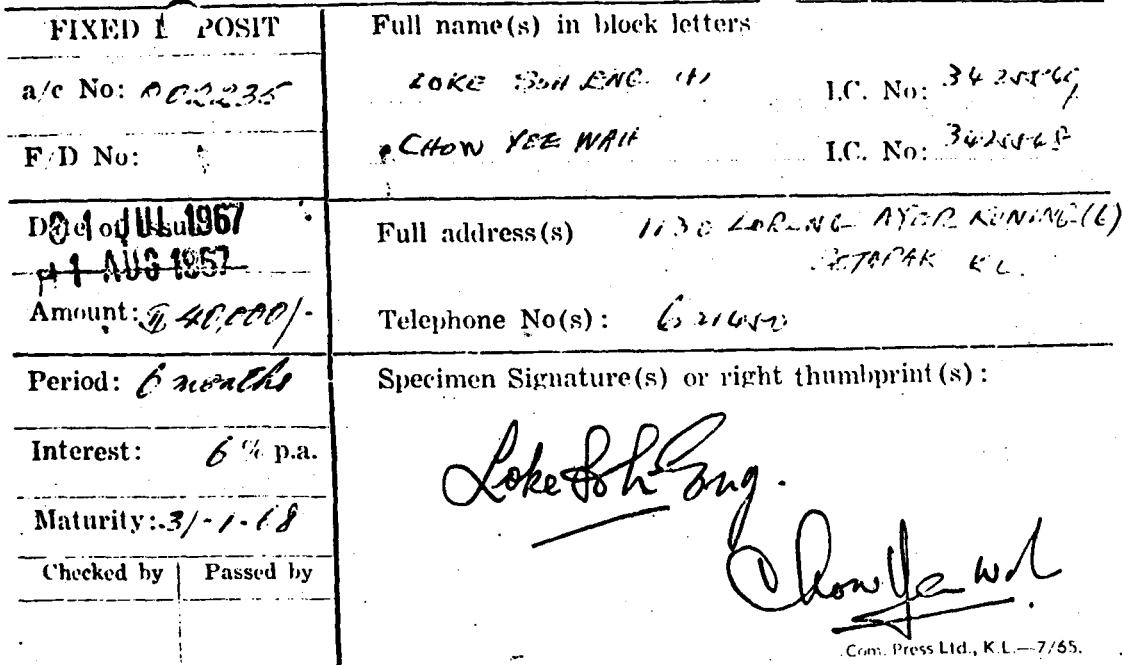 FIXED POSIT
a/c No: 002235
F/D No:
Date of Issue
31 JUL 1967
1 AUG 1967
Amount: 40,000/-
Period: 6 months
Interest: 6 % p.a.
Maturity: 31-1-68
Checked by Passed by
Full name(s) in block letters
LOKE SOH ENG I.C. No:
CHOW YEE WAH I.C. No:
Full address(s) LORONG AYER KUNING (6)
SETAPAK K L.
Telephone No(s):
Specimen Signature(s) or right thumbprint(s):
Loke Soh Eng.
Chow Yee Wah
Com. Press Ltd., K.L.—7/65.